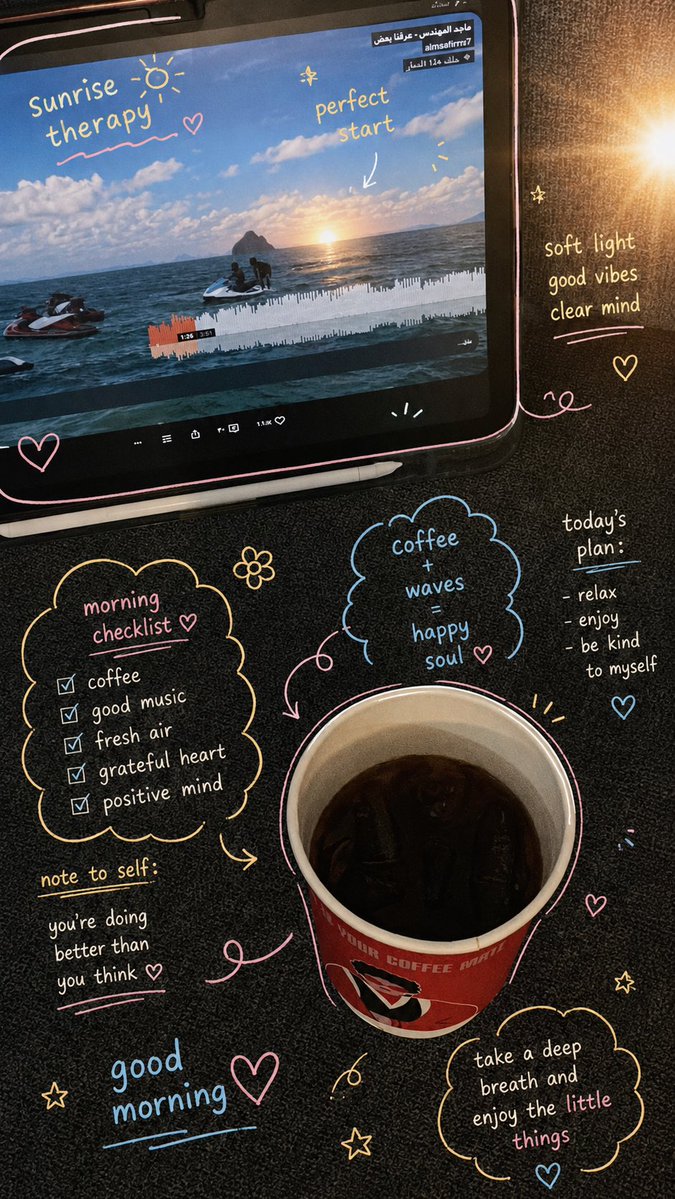 ماجد المهندس - عرفنا بعض
almsafirrrr7
sunrise
therapy
perfect
start
soft light
good vibes
clear mind
1:26 3:51
٢٠
1.1K
coffee
+
waves
=
happy
soul
today's
plan:
- relax
- enjoy
- be kind
to myself
morning
checklist
coffee
good music
fresh air
grateful heart
positive mind
note to self:
you're doing
better than
you think
YOUR COFFEE MATE
good
morning
take a deep
breath and
enjoy the little
things